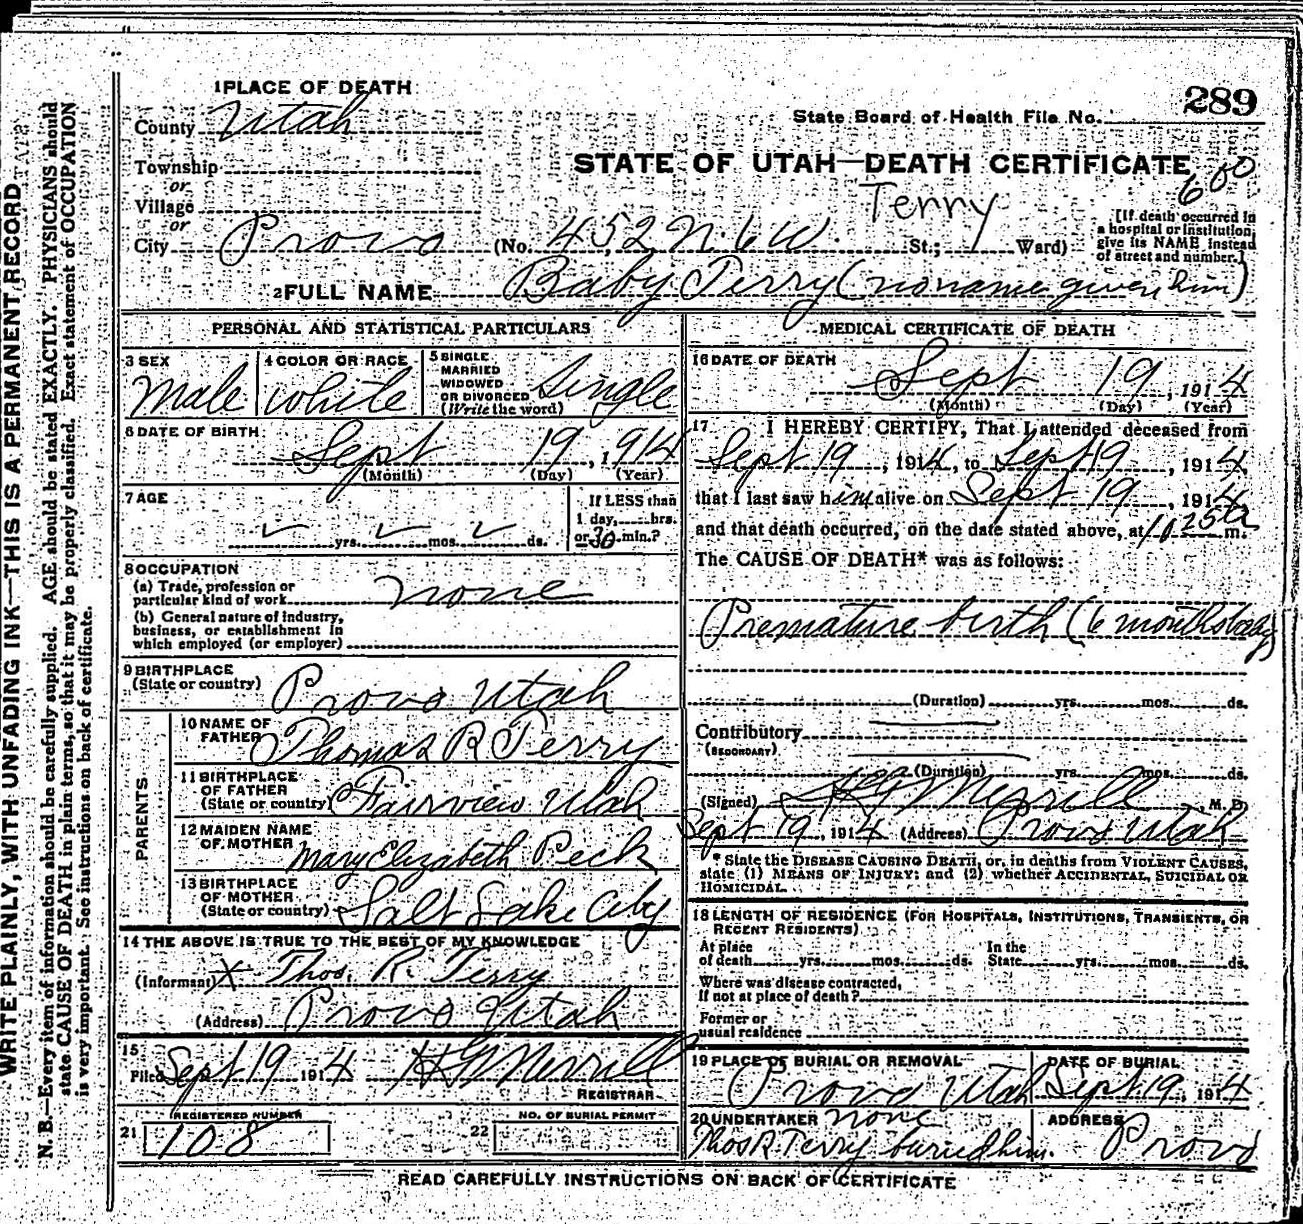 WRITE PLAINLY, WITH UNFADING INK—THIS IS A PERMANENT RECORD
N. B.—Every item of information should be carefully supplied. AGE should be stated EXACTLY. PHYSICIANS should
state CAUSE OF DEATH in plain terms, so that it may be properly classified. Exact statement of OCCUPATION
is very important. See instructions on back of certificate.
1 PLACE OF DEATH
289
County Utah
State Board of Health File No.
Township
STATE OF UTAH—DEATH CERTIFICATE
600
or
Village
Terry
or
City Provo (No. 452 N. 6 W. St.; 1 Ward)
[If death occurred in
a hospital or institution,
give its NAME instead
of street and number.]
2 FULL NAME Baby Terry (no name given him)
PERSONAL AND STATISTICAL PARTICULARS
3 SEX Male
4 COLOR OR RACE white
5 SINGLE
MARRIED
WIDOWED
OR DIVORCED
(Write the word) Single
6 DATE OF BIRTH
Sept 19, 1914
(Month) (Day) (Year)
7 AGE
yrs. mos. ds.
If LESS than
1 day, hrs.
or 30 min.?
8 OCCUPATION
(a) Trade, profession or
particular kind of work none
(b) General nature of industry,
business, or establishment in
which employed (or employer)
9 BIRTHPLACE
(State or country) Provo Utah
PARENTS
10 NAME OF
FATHER Thomas R Terry
11 BIRTHPLACE
OF FATHER
(State or country) Fairview Utah
12 MAIDEN NAME
OF MOTHER Mary Elizabeth Peck
13 BIRTHPLACE
OF MOTHER
(State or country) Salt Lake City
14 THE ABOVE IS TRUE TO THE BEST OF MY KNOWLEDGE
(Informant) X Thos. R. Terry
(Address) Provo Utah
15
Filed Sept 19 1914 H G Merrill
REGISTRAR
REGISTERED NUMBER
21 108
NO. OF BURIAL PERMIT
22
MEDICAL CERTIFICATE OF DEATH
16 DATE OF DEATH
Sept 19, 1914
(Month) (Day) (Year)
17 I HEREBY CERTIFY, That I attended deceased from
Sept 19, 1914, to Sept 19, 1914,
that I last saw him alive on Sept 19, 1914
and that death occurred, on the date stated above, at 10 25 a m.
The CAUSE OF DEATH* was as follows:
Premature birth (6 months baby)
(Duration) yrs. mos. ds.
Contributory
(SECONDARY)
(Duration) yrs. mos. ds.
(Signed) H G Merrill, M. D.
Sept 19, 1914 (Address) Provo Utah
* State the DISEASE CAUSING DEATH, or, in deaths from VIOLENT CAUSES,
state (1) MEANS OF INJURY; and (2) whether ACCIDENTAL, SUICIDAL OR
HOMICIDAL.
18 LENGTH OF RESIDENCE (FOR HOSPITALS, INSTITUTIONS, TRANSIENTS, OR
RECENT RESIDENTS)
At place In the
of death yrs. mos. ds. State yrs. mos. ds.
Where was disease contracted,
if not at place of death?
Former or
usual residence
19 PLACE OF BURIAL OR REMOVAL DATE OF BURIAL
Provo Utah Sept 19, 1914
20 UNDERTAKER none ADDRESS
Thos R Terry buried him. Provo
READ CAREFULLY INSTRUCTIONS ON BACK OF CERTIFICATE